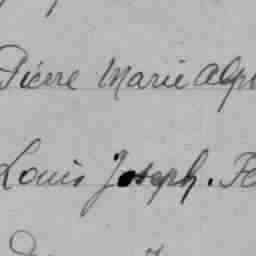 Pierre Marie Alp
Louis Joseph. Fe